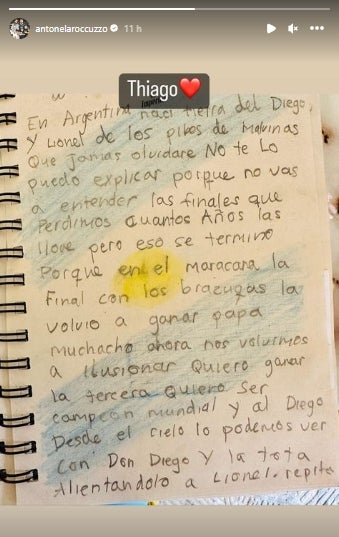 antonelaroccuzzo 11 h
Thiago
En Argentina naci tierra del Diego,
Y Lionel de los pibes de malvinas
Que Jamas olvidare No te Lo
puedo explicar porque no vas
a entender las finales que
Perdimos cuantos Años las
llore pero eso se termino
Porque en el maracana la
final con los brazugas la
volvio a ganar papa
muchacho ahora nos volvimos
a ilusionar Quiero ganar
la tercera Quiero Ser
campeon mundial y al Diego
Desde el cielo lo podemos ver
Con Don Diego Y la tota
Alientandolo a Lionel. repito